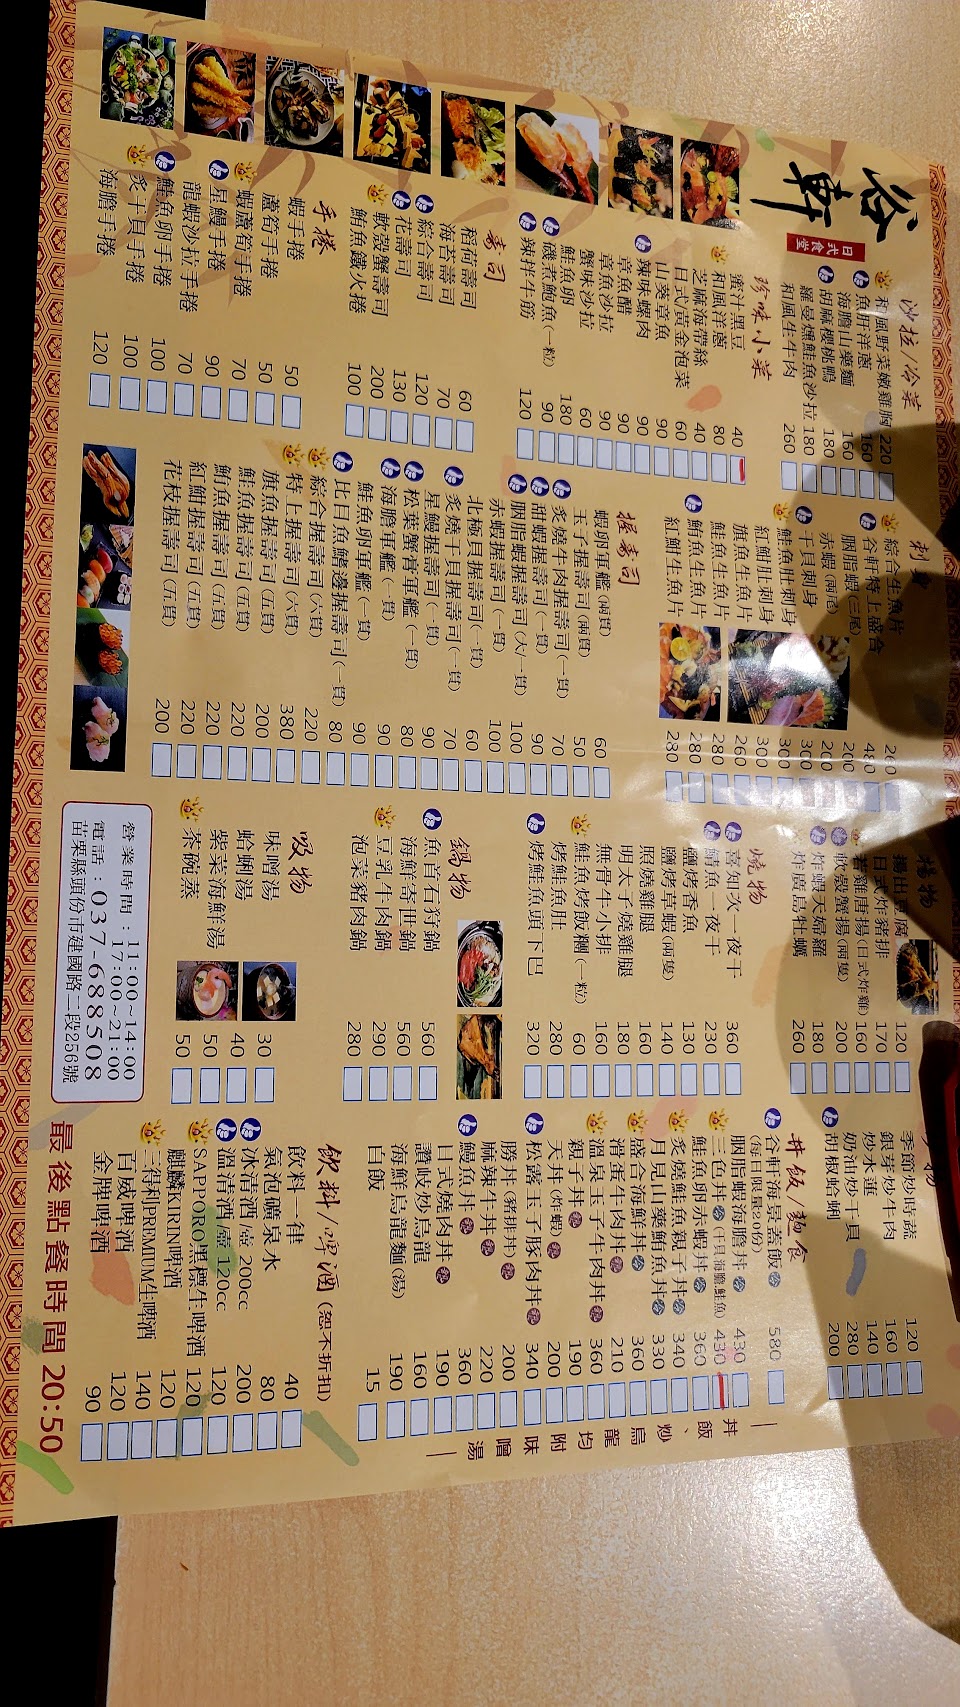 谷軒
日式食堂
沙拉/冷菜
和風野菜嫩雞胸 220
魚肝洋蔥 160
海膽山藥麵 160
胡麻櫻桃鴨 180
羅曼燻鮭魚沙拉 180
和風生牛肉 260
珍味小菜
蜜汁黑豆 40
和風洋蔥 80
芝麻海帶絲 40
日式黃金泡菜 60
山葵章魚 90
辣味螺肉 90
章魚醋 90
章魚沙拉 90
蟹味沙拉 60
鮭魚卵 180
磯煮鮑魚(一粒) 90
辣拌牛筋 120
壽司
稻荷壽司 60
海苔壽司 70
綜合壽司 120
花壽司 130
軟殼蟹壽司 200
鮪魚鐵火捲 100
手捲
蝦手捲 50
蘆筍手捲 50
蝦蘆筍手捲 70
星鰻手捲 90
龍蝦沙拉手捲 70
鮭魚卵手捲 100
炙干貝手捲 100
海膽手捲 120
刺身
綜合生魚片 260
谷軒特上盛合 480
胭脂蝦(三尾) 200
赤蝦(兩尾) 200
干貝刺身 300
鮭魚肚刺身 300
紅魽肚刺身 300
旗魚生魚片 260
鮭魚生魚片 280
鮪魚生魚片 280
紅魽生魚片 280
握壽司
蝦卵軍艦(兩貫) 60
玉子握壽司(兩貫) 50
炙燒牛肉握壽司(一貫) 70
甜蝦握壽司(一貫) 90
胭脂蝦握壽司(大/一貫) 100
赤蝦握壽司(一貫) 100
北極貝握壽司(一貫) 60
炙燒干貝握壽司(一貫) 70
星鰻握壽司(一貫) 90
松葉蟹膏軍艦(一貫) 80
海膽軍艦(一貫) 90
鮭魚卵軍艦(一貫) 90
比目魚鰭邊握壽司(一貫) 80
綜合握壽司(六貫) 220
特上握壽司(六貫) 380
旗魚握壽司(五貫) 200
鮭魚握壽司(五貫) 220
鮪魚握壽司(五貫) 220
紅魽握壽司(五貫) 220
花枝握壽司(五貫) 200
揚物
揚出豆腐 120
日式炸豬排 170
若雞唐揚(日式炸雞) 160
軟殼蟹揚(兩隻) 200
炸蝦天婦羅 180
炸廣島牡蠣 260
燒物
喜知次一夜干 360
鯖魚一夜干 230
鹽烤香魚 130
鹽烤草蝦(兩隻) 140
照燒雞腿 160
明太子燒雞腿 180
無骨牛小排 160
鮭魚烤飯糰(一粒) 60
烤鮭魚肚 280
烤鮭魚頭下巴 320
鍋物
魚首石狩鍋 560
海鮮寄世鍋 560
豆乳牛肉鍋 290
泡菜豬肉鍋 280
吸物
味噌湯 30
蛤蜊湯 40
紫菜海鮮湯 50
茶碗蒸 50
營業時間：11:00~14:00
17:00~21:00
電話：037-688508
苗栗縣頭份市建國路二段256號
季節炒時蔬 120
銀芽炒牛肉 160
炒水蓮 140
奶油炒干貝 280
胡椒蛤蜊 200
丼飯/麵食
谷軒海景蓋飯 580
(每日限量20份)
胭脂蝦海膽丼 430
三色丼(干貝,海膽,鮭魚) 430
鮭魚卵赤蝦丼 360
炙燒鮭魚親子丼 340
月見山藥鮪魚丼 330
盛合海鮮丼 360
滑蛋牛肉丼 210
溫泉玉子牛肉丼 360
親子丼 190
天丼(炸蝦) 200
松露玉子豚肉丼 340
勝丼(豬排丼) 200
麻辣牛丼 220
鰻魚丼 360
日式燒肉丼 190
讚岐炒烏龍 160
海鮮烏龍麵(湯) 190
白飯 15
丼飯、炒烏龍均附味噌湯
飲料/啤酒(恕不折扣)
飲料一律 40
氣泡礦泉水 80
冰清酒/壺 200cc 200
溫清酒/壺 120cc 120
SAPPORO黑標生啤酒 120
麒麟KIRIN啤酒 120
三得利PREMIUM生啤酒 140
百威啤酒 120
金牌啤酒 90
最後點餐時間 20:50